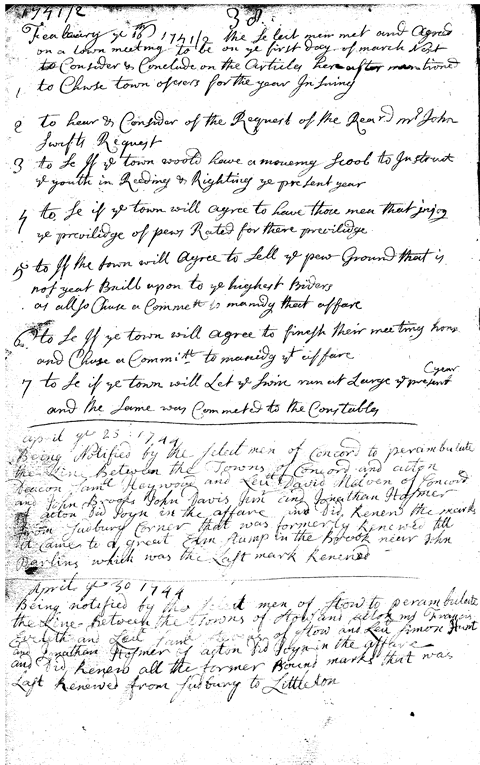 1741/2
38
Feabuary ye 15th 1741/2 the Select men met and Agreed
on a town meeting to be on ye first day of march Next
to Consider & Conclude on the Articles here after mentioned
1 to Chuse town ofesers for the year Insuing
2 to hear & Consider of the Request of the Reard mr John
Swifts Request
3 to Se If ye town woold have a moueing Scool to Instruct
ye youth in Reeding & Righting ye present year
4 to Se if ye town will agree to have those men that injoy
ye previlidge of pews Rated for there previlidge
5 to If the town will Agree to Sell ye pew Ground that is
not yeat Bnill upon to ye highest Biders
as allso Chuse a Commett to manidg that affare
6 to Se If ye town will Agree to finesh their meeting hous
and Chuse a Committ to manidg yt affare
7 to Se if ye town will Let ye Swin run at Large ye present year
and the Same was Commeted to the Constables
april ye 23: 1744
Being Notified by the Select men of Concord to perambulate
the Line Between the Towns of Concord and acton
Deacon Samll Heywood and Leut David Melven of Concord
and John Brooks John Davis Jun and Jonathan Hosmer
of acton Did Joyn in the affare and Did Renew the marks
from Sudbury Corner that was formerly Renewed till
it came to a great Elm Stump in the Brook near John
Barlins which was the Last mark Renewed
April ye 30 1744
Being notified by the Select men of Stow to perambulate
the Line Between the Towns of Stow and acton mr Francis
and Leut Samll of Stow and Leut Simon Hunt
and Jonathan Hosmer of acton Did Joyn in the affare
and Did Renew all the former Bound marks that was
Last Renewed from Sudbury to Littleton